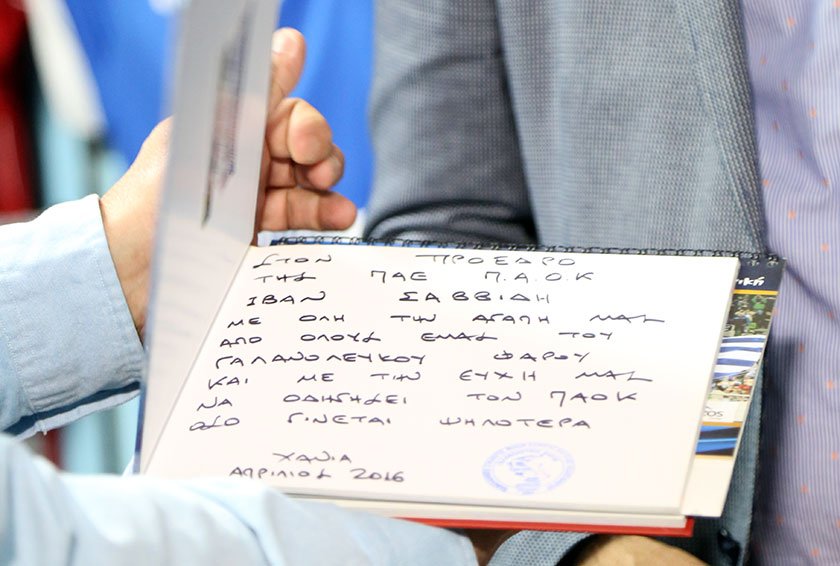 ΣΤΟΝ ΠΡΟΕΔΡΟ
ΤΗΣ ΠΑΕ Π.Α.Ο.Κ
ΙΒΑΝ ΣΑΒΒΙΔΗ
ΜΕ ΟΛΗ ΤΗΝ ΑΓΑΠΗ ΜΑΣ
ΑΠΟ ΟΛΟΥΣ ΕΜΑΣ ΤΟΥ
ΓΑΛΑΝΟΛΕΥΚΟΥ ΦΑΡΟΥ
ΚΑΙ ΜΕ ΤΗΝ ΕΥΧΗ ΜΑΣ
ΝΑ ΟΔΗΓΗΣΕΙ ΤΟΝ ΠΑΟΚ
ΟΣΟ ΓΙΝΕΤΑΙ ΨΗΛΟΤΕΡΑ
ΧΑΝΙΑ
ΑΠΡΙΛΙΟΣ 2016